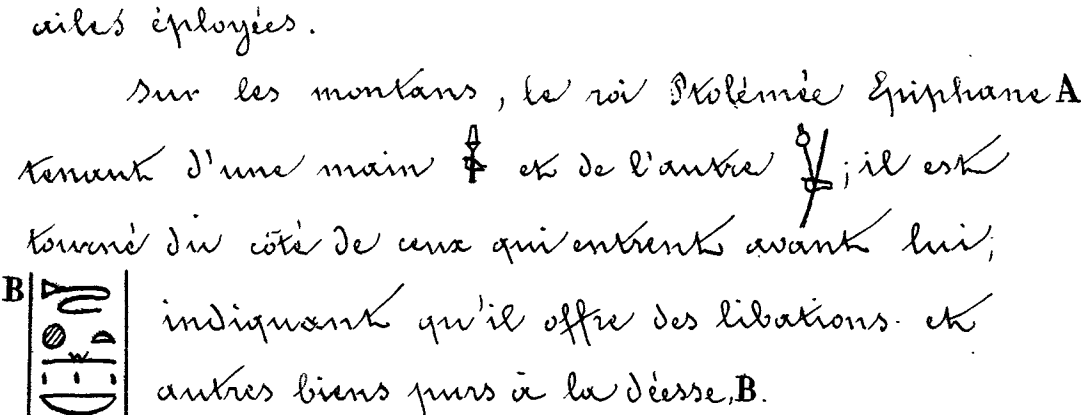 ailes éployées.
Sur les montans, le roi Ptolémée Epiphane A
tenant d'une main et de l'autre ; il est
tourné du côté de ceux qui entrent avant lui;
B indiquant qu'il offre des libations et
autres biens purs à la déesse, B.